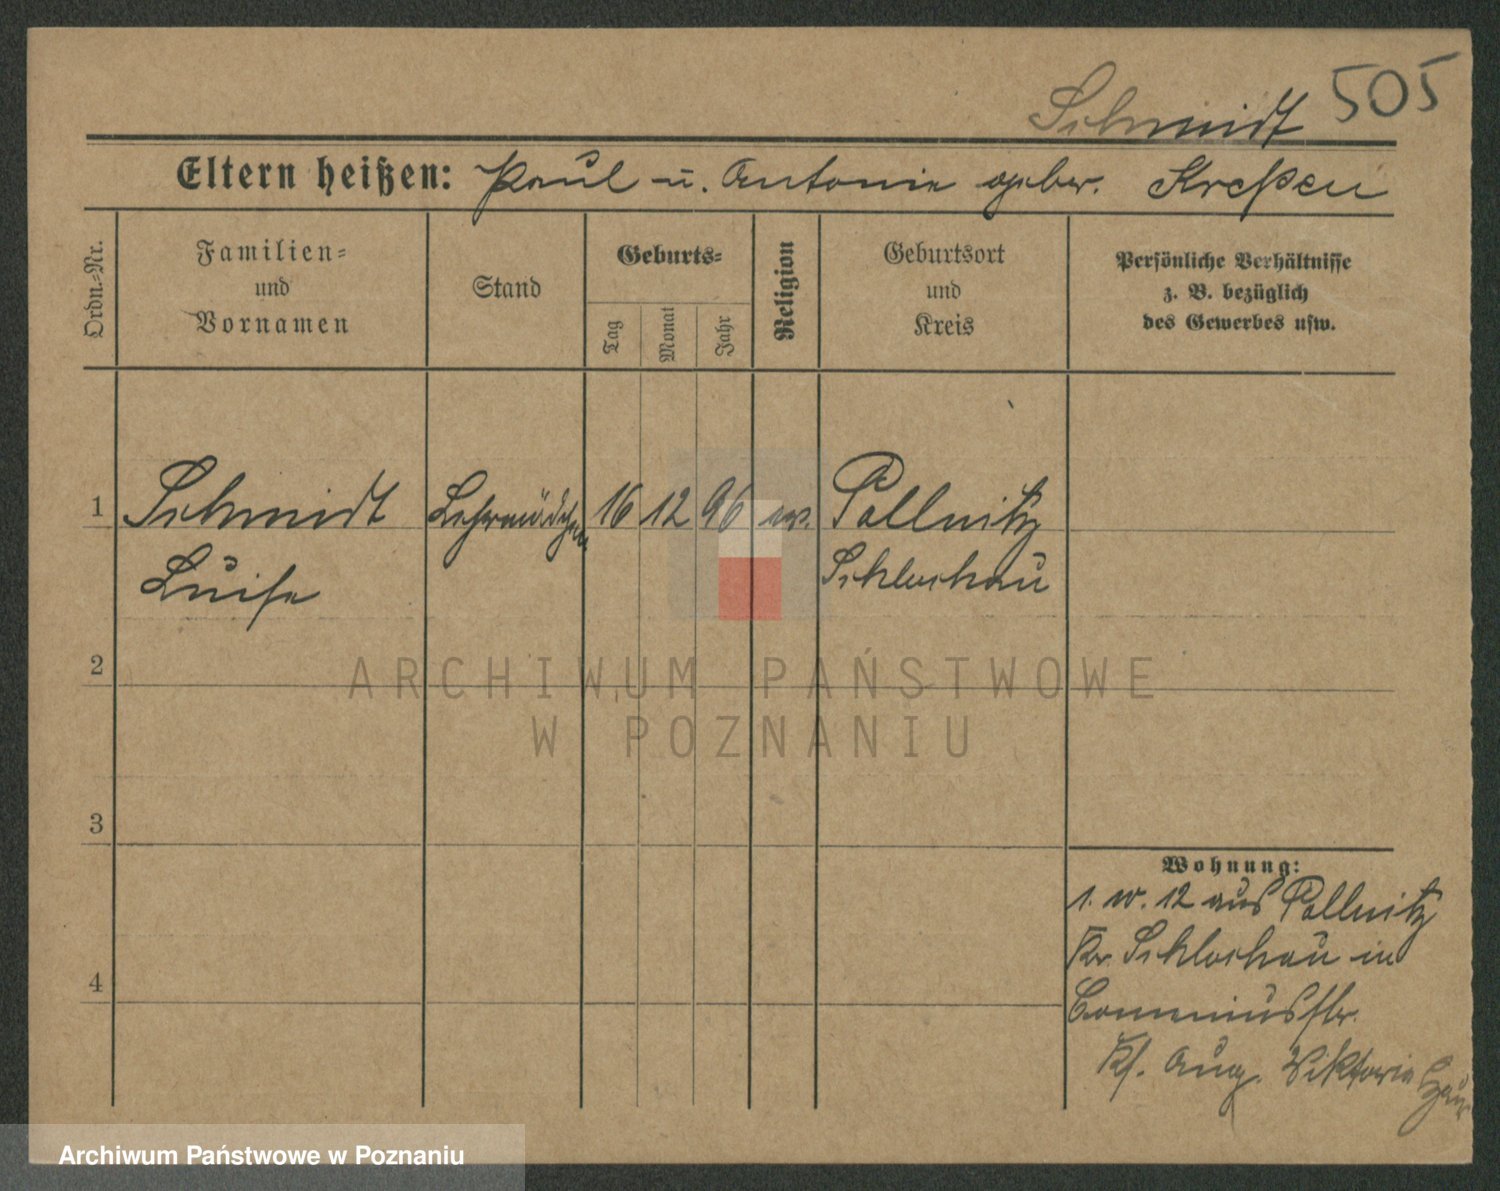 Schmidt 505
Eltern heißen: Paul u. Antonie geber. Kreßen
Ordn.-Nr.
Familien-
und
Vornamen
Stand
Geburts-
Tag
Monat
Jahr
Religion
Geburtsort
und
Kreis
Persönliche Verhältnisse
z. B. bezüglich
des Gewerbes usw.
1 Schmidt Lehrmädchen 16 12 96 ev. Pollnitz
Luise Schlochau
2
3
4
Wohnung:
1. 10. 12 aus Pollnitz
Kr. Schlochau in
Comeniusstr.
Ks. Aug. Viktoria Haus
ARCHIWUM PAŃSTWOWE
W POZNANIU
Archiwum Państwowe w Poznaniu